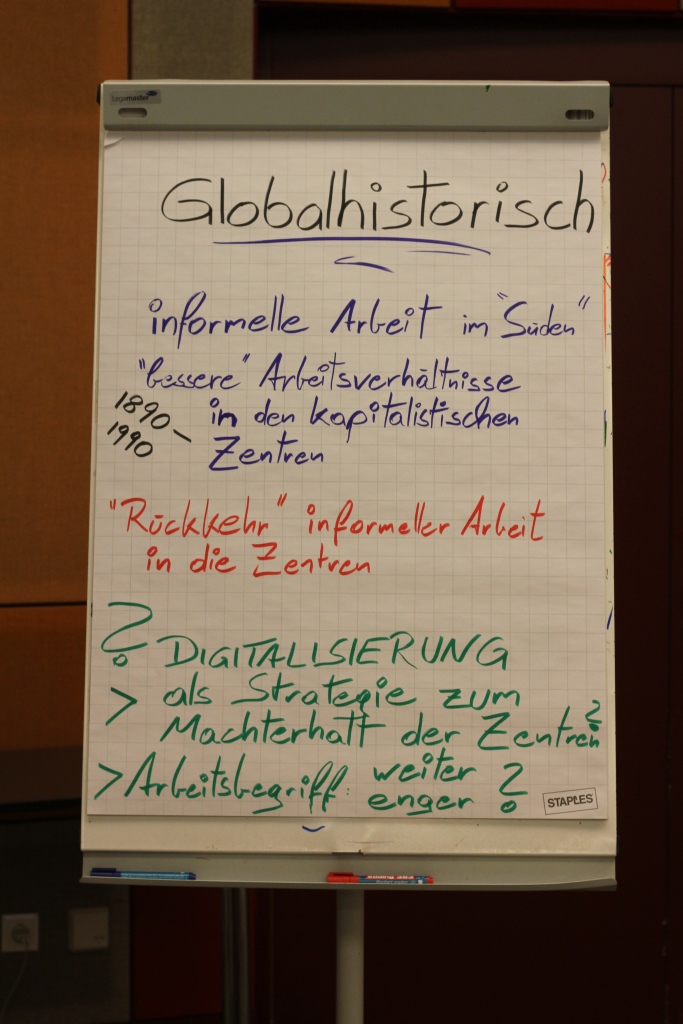 Legamaster
Globalhistorisch
informelle Arbeit im "Süden"
"bessere" Arbeitsverhältnisse
1890 – in den kapitalistischen
1990 Zentren
"Rückkehr" informeller Arbeit
in die Zentren
? DIGITALISIERUNG
> als Strategie zum
Machterhalt der Zentren ?
> Arbeitsbegriff: weiter ?
enger
STAPLES